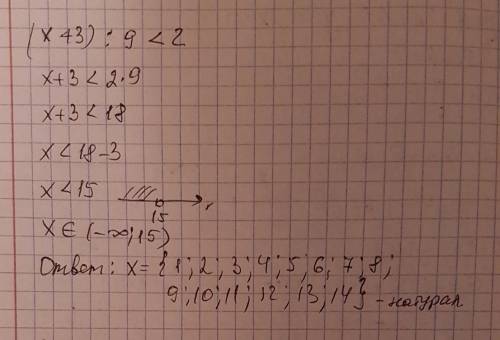 (x+3) : 9 < 2
x+3 < 2·9
x+3 < 18
x < 18-3
x < 15
15
x ∈ (-∞; 15)
Ответ: x = {1; 2; 3; 4; 5; 6; 7; 8;
9; 10; 11; 12; 13; 14} - натурал